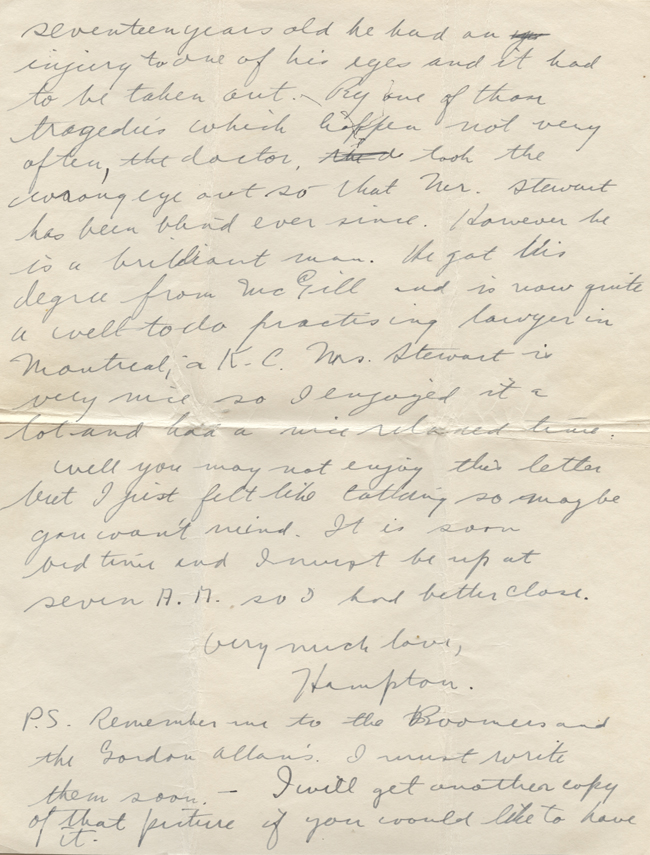 seventeen years old he had an
injury to one of his eyes and it had
to be taken out. – By one of those
tragedies which happen not very
often, the doctor, took the
wrong eye out so that Mr. Stewart
has been blind ever since. However he
is a brilliant man. He got his
degree from McGill and is now quite
a well to do practising lawyer in
Montreal, a K.C. Mrs. Stewart is
very nice so I enjoyed it a
lot and had a nice relaxed time.
Well you may not enjoy this letter
but I just felt like talking so maybe
you won't mind. It is soon
bed time and I must be up at
seven A.M. so I had better close.
Very much love,
Hampton.
P.S. Remember me to the Boomers and
the Gordon Allans. I must write
them soon. – I will get another copy
of that picture if you would like to have
it.